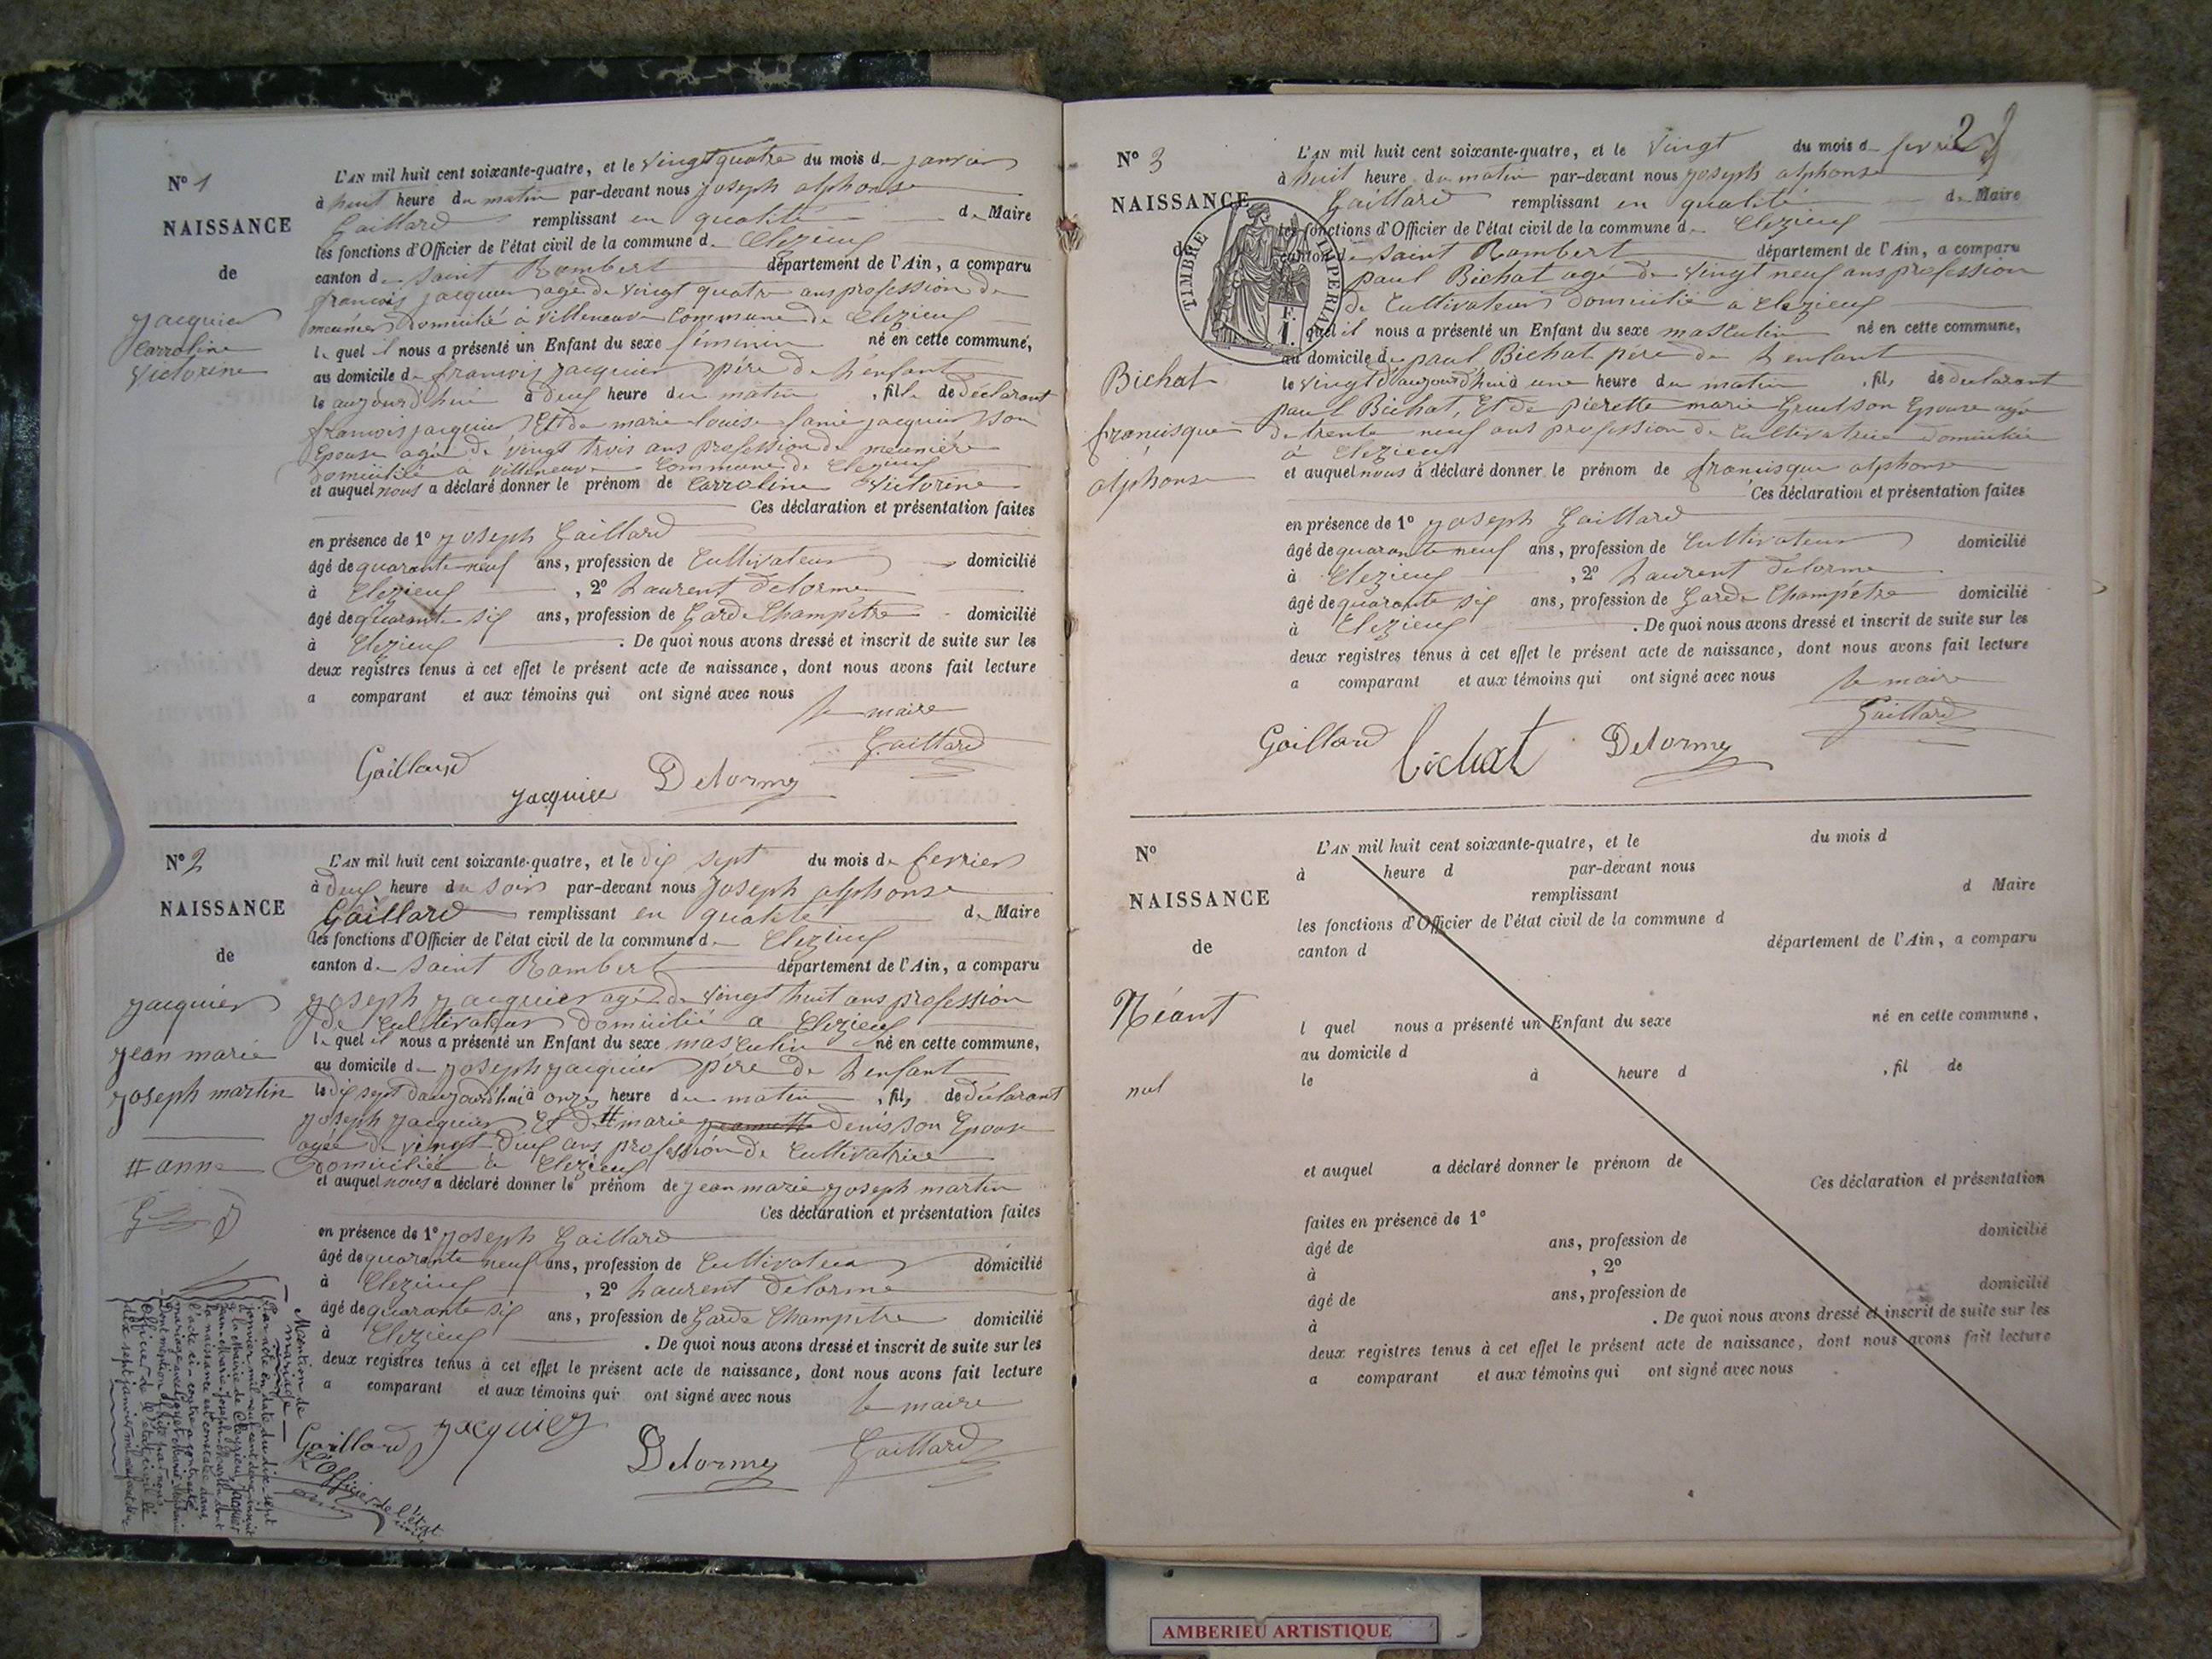 N° 1
NAISSANCE
de
Jacquier
Carroline
Victorine
L'AN mil huit cent soixante-quatre, et le Vingt quatre du mois de janvier
à huit heure du matin par-devant nous Joseph alphonse
Gaillard remplissant en qualité de Maire
les fonctions d'Officier de l'état civil de la commune de Clezieux
canton de Saint Rambert département de l'Ain, a comparu
francois jacquier agé de vingt quatre ans profession de
meunier domicilié à Villeneuve Commune de Clezieux
le quel il nous a présenté un Enfant du sexe féminin né en cette commune,
au domicile de francois jacquier père de l'enfant
le aujourd'hui à deux heure du matin, fille de déclarant
francois jacquier Et de marie louise jacquier son
Epouse agé de vingt trois ans profession de meunière
domiciliée a Villeneuve Commune de Clezieux
et auquel nous a déclaré donner le prénom de Carroline Victorine
Ces déclaration et présentation faites
en présence de 1° Joseph Gaillard
âgé de quarante neuf ans, profession de Cultivateur domicilié
à Clezieux, 2° Laurent delorme
âgé de quarante six ans, profession de Garde Champêtre domicilié
à Clezieux. De quoi nous avons dressé et inscrit de suite sur les
deux registres tenus à cet effet le présent acte de naissance, dont nous avons fait lecture
a comparant et aux témoins qui ont signé avec nous
le maire
Gaillard
Gaillard
Jacquier
Delorme
N° 2
NAISSANCE
de
Jacquier
jean marie
joseph martin
# anne
L'AN mil huit cent soixante-quatre, et le dix sept du mois de fevrier
à deux heure du soir par-devant nous Joseph alphonse
Gaillard remplissant en qualité de Maire
les fonctions d'Officier de l'état civil de la commune de Clezieux
canton de Saint Rambert département de l'Ain, a comparu
joseph jacquier agé de vingt huit ans profession
de Cultivateur domicilié a Clezieux
le quel il nous a présenté un Enfant du sexe masculin né en cette commune,
au domicile de joseph jacquier père de l'enfant
le dix sept d'aujourd'hui à onze heure du matin, fils de déclarant
joseph jacquier Et de # marie jeannette denis son Epouse
agée de vingt deux ans profession de Cultivatrice
domiciliée à Clezieux
et auquel nous a déclaré donner le prénom de jean marie joseph martin
Ces déclaration et présentation faites
en présence de 1° Joseph Gaillard
âgé de quarante neuf ans, profession de Cultivateur domicilié
à Clezieux, 2° Laurent delorme
âgé de quarante six ans, profession de Garde Champêtre domicilié
à Clezieux. De quoi nous avons dressé et inscrit de suite sur les
deux registres tenus à cet effet le présent acte de naissance, dont nous avons fait lecture
a comparant et aux témoins qui ont signé avec nous
le maire
Gaillard
Jacquier
Delorme
Gaillard
Mention de
mariage
Par acte en date du dix-sept
janvier mil neuf cent inscrit
à la mairie de Cleyzieu, Jacquier
Jean-Marie-Joseph-Martin dont
la naissance est constatée dans
l'acte ci-contre a contracté
mariage avec
Dont mention faite par nous
Officier de l'état civil le
dix sept janvier mil neuf cent
L'Officier de l'état
civil
2
N° 3
NAISSANCE
d
TIMBRE IMPERIAL
Bichat
francisque
alphonse
L'AN mil huit cent soixante-quatre, et le Vingt du mois de fevrier
à huit heure du matin par-devant nous joseph alphonse
Gaillard remplissant en qualité de Maire
les fonctions d'Officier de l'état civil de la commune de Clezieux
canton de Saint Rambert département de l'Ain, a comparu
paul Bichat agé de Vingt neuf ans profession
de Cultivateur domicilié a Clezieux
quel il nous a présenté un Enfant du sexe masculin né en cette commune,
au domicile de paul Bichat père de l'enfant
le vingt d'aujourd'hui à une heure du matin, fils de declarant
paul Bichat, Et de pierette marie son Epouse agé
de trente neuf ans profession de Cultivatrice domiciliée
à Clezieux
et auquel nous a déclaré donner le prénom de francisque alphonse
Ces déclaration et présentation faites
en présence de 1° joseph Gaillard
âgé de quarante neuf ans, profession de Cultivateur domicilié
à Clezieux, 2° Laurent delorme
âgé de quarante six ans, profession de Garde Champêtre domicilié
à Clezieux. De quoi nous avons dressé et inscrit de suite sur les
deux registres tenus à cet effet le présent acte de naissance, dont nous avons fait lecture
a comparant et aux témoins qui ont signé avec nous
le maire
Gaillard
Gaillard
bichat
Delorme
N°
NAISSANCE
de
Néant
nul
L'AN mil huit cent soixante-quatre, et le du mois d
à heure d par-devant nous
remplissant d Maire
les fonctions d'Officier de l'état civil de la commune d
canton d département de l'Ain, a comparu
l quel nous a présenté un Enfant du sexe né en cette commune,
au domicile d
le à heure d, fil de
et auquel a déclaré donner le prénom de
Ces déclaration et présentation
faites en présence de 1°
âgé de ans, profession de domicilié
à, 2°
âgé de ans, profession de domicilié
à. De quoi nous avons dressé et inscrit de suite sur les
deux registres tenus à cet effet le présent acte de naissance, dont nous avons fait lecture
a comparant et aux témoins qui ont signé avec nous
AMBERIEU ARTISTIQUE